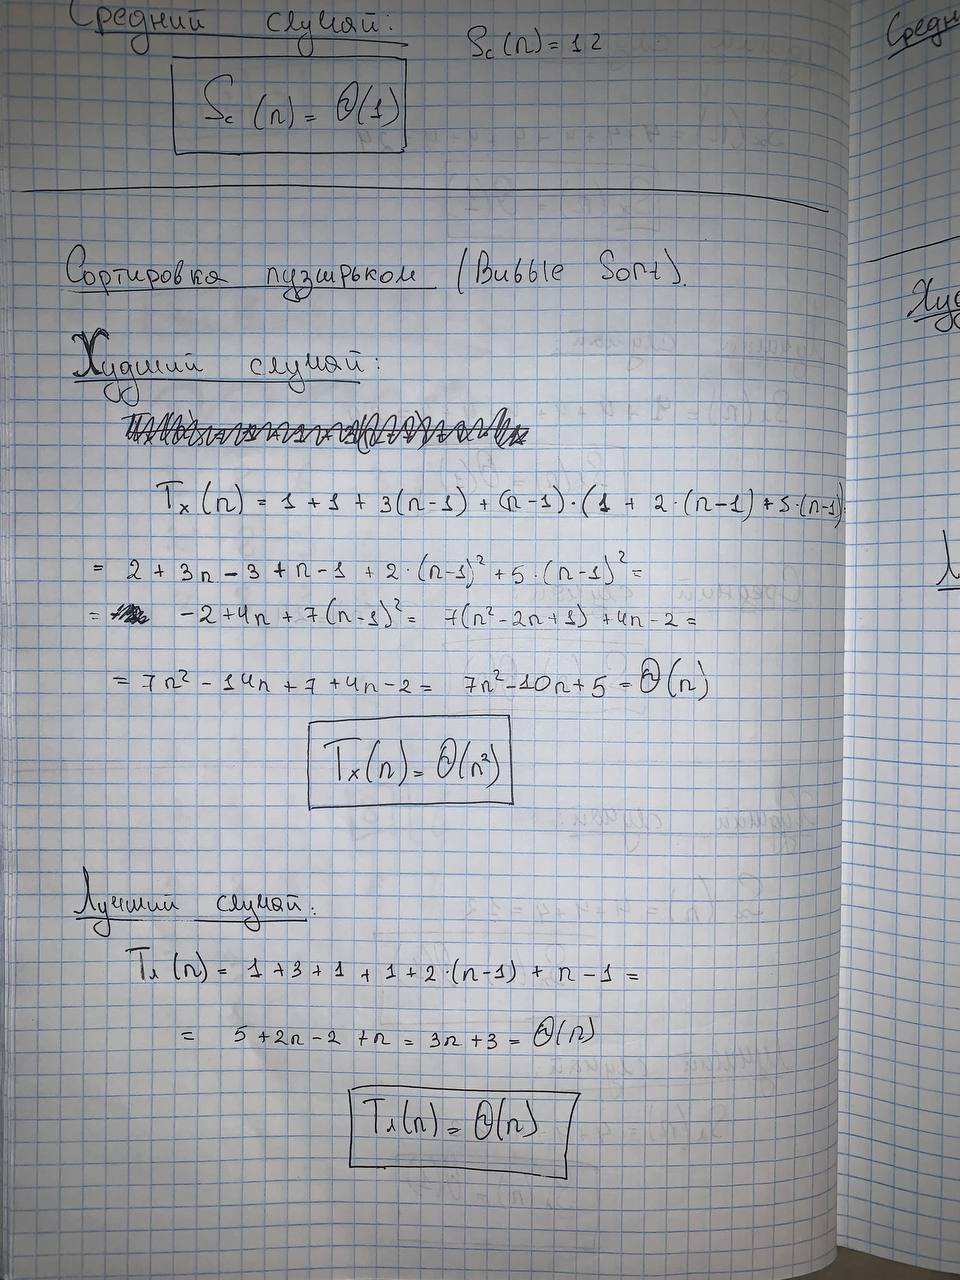 Средний случай:
Sc(n) = 12
Sc(n) = Θ(1)
Сортировка пузырьком (Bubble Sort).
Худший случай:
Tх(n) = 1 + 1 + 3(n-1) + (n-1)·(1 + 2·(n-1) + 5·(n-1)
= 2 + 3n - 3 + n - 1 + 2·(n-1)² + 5·(n-1)² =
= -2 + 4n + 7(n-1)² = 7(n² - 2n + 1) + 4n - 2 =
= 7n² - 14n + 7 + 4n - 2 = 7n² - 10n + 5 = Θ(n)
Tх(n) = Θ(n²)
Лучший случай:
Tл(n) = 1 + 3 + 1 + 1 + 2·(n-1) + n - 1 =
= 5 + 2n - 2 + n = 3n + 3 = Θ(n)
Tл(n) = Θ(n)
Средн
Худ